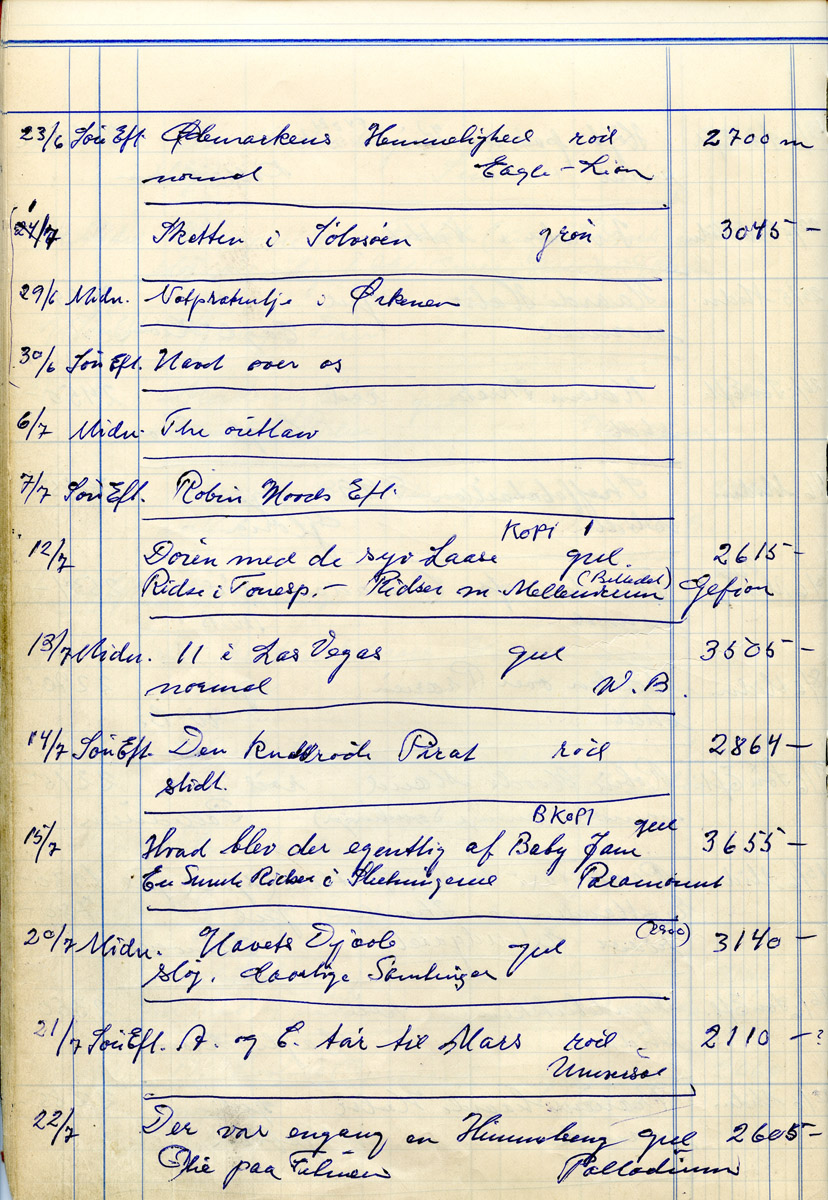 23/6 Søn Eft. Ødemarkens Hemmelighed röd 2700 m
normal Eagle-Lion
24/7 Skatten i Sølvsøen grön 3045 -
29/6 Midn. Natpatrulje i Ørkenen
30/6 Søn Eft. Havet over os
6/7 Midn. The outlaw
7/7 Søn Eft. Robin Hoods Eft.
KOPI 1
12/7 Dören med de syv Laase gul. 2615 -
Ridse i Tonesp. - Ridser m. Mellemrum (Billedet) Gefion
13/7 Midn. 11 i Las Vegas gul 3505 -
normal W.B.
14/7 Søn Eft. Den knaldröde Pirat röd 2864 -
slidt.
B KOPI
15/7 Hvad blev der egentlig af Baby Jane gul 3655 -
En Smule Ridser i Slutningerne Paramount
20/7 Midn. Havets Djævle gul (2900) 3140 -
støj. daarlige Samlinger
21/7 Søn Eft. A. og C. tar til Mars röd 2110 - ?
Universal
22/7 Der var engang en Himmelseng gul 2605 -
Olie paa Filmen Palladium